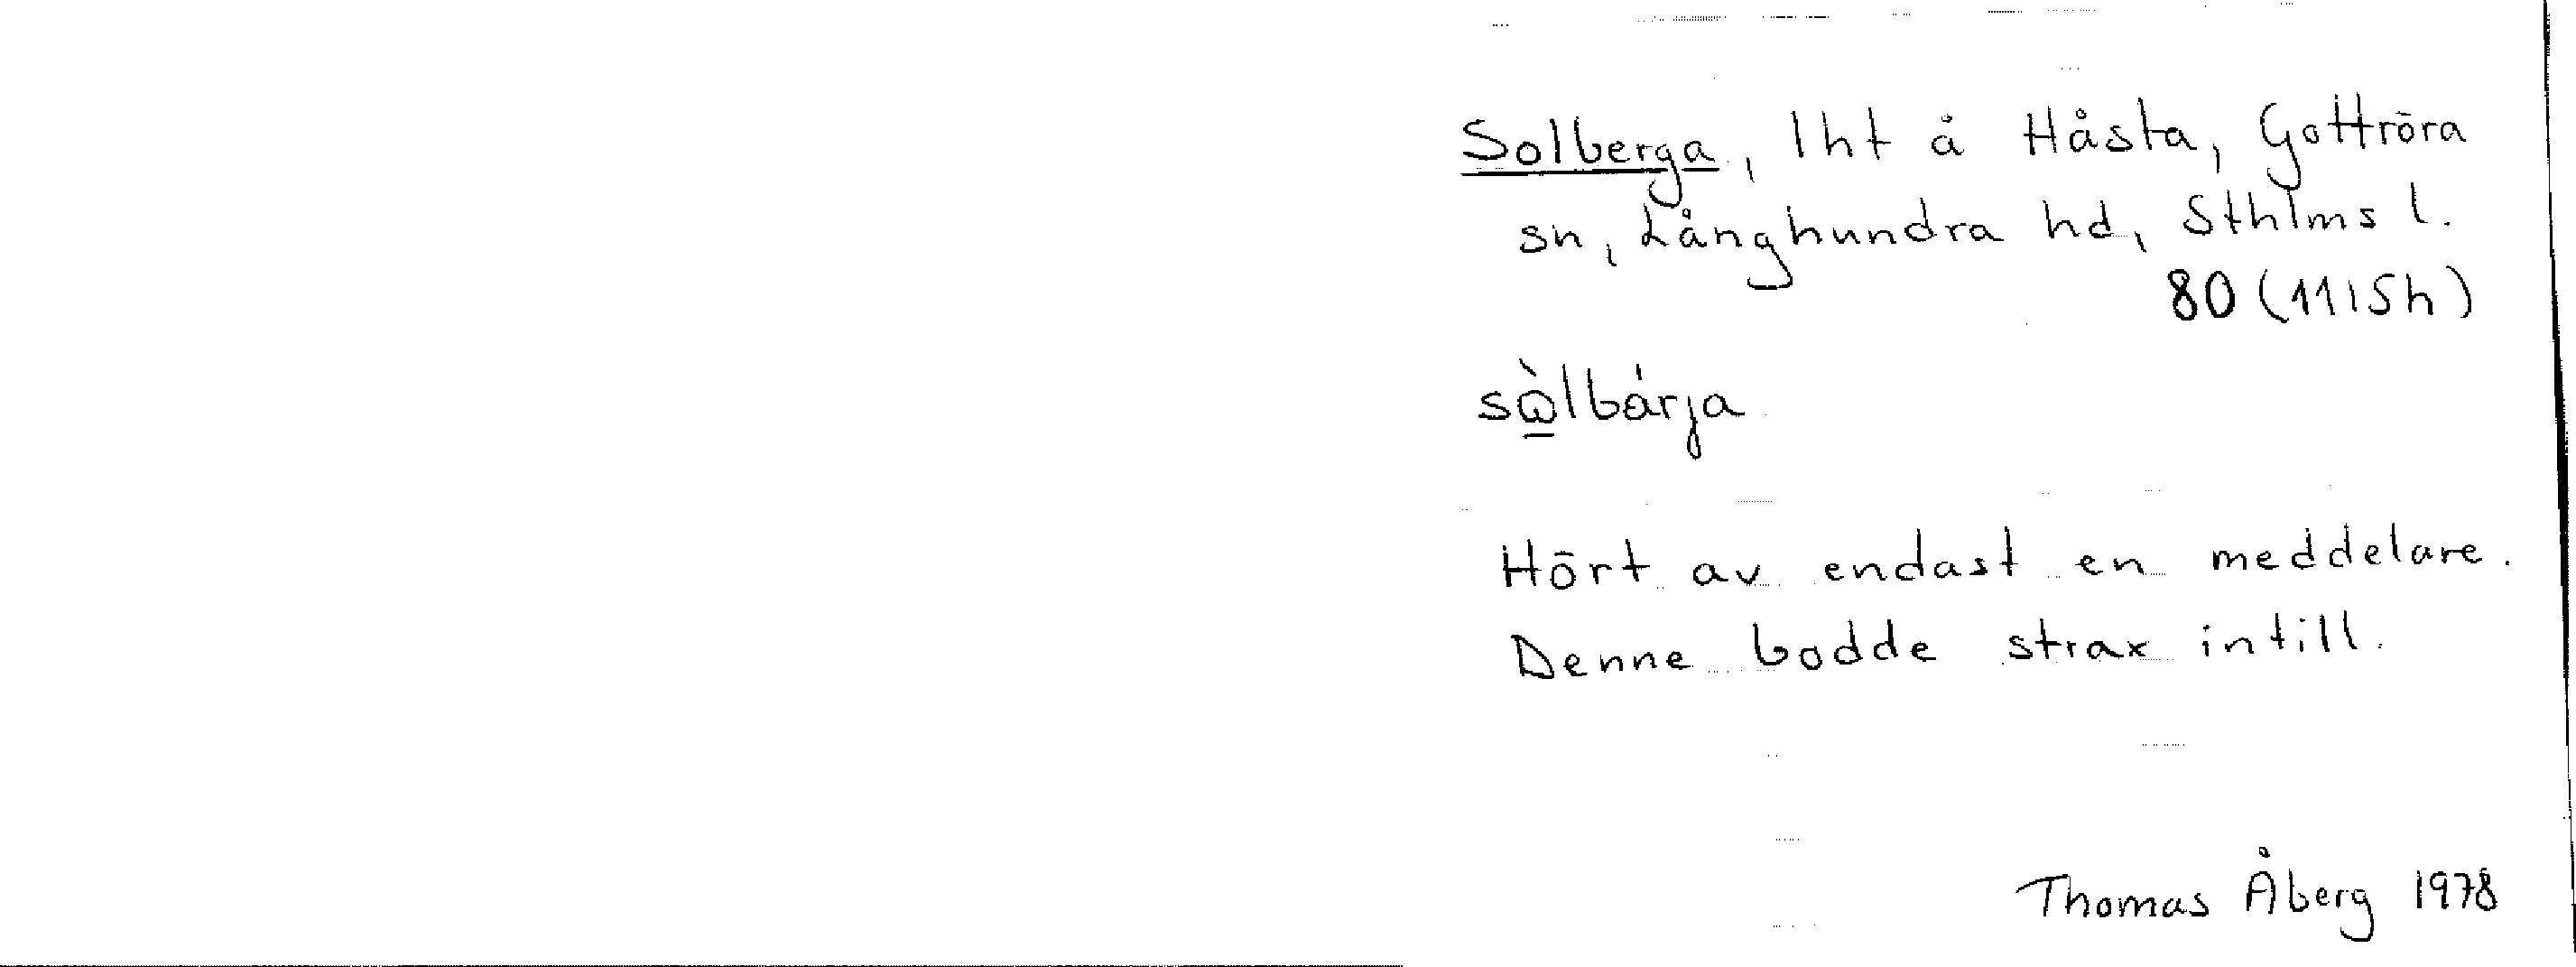 Solberga, lht å Håsta, Gottröra
sn, Långhundra hd, Sthlms l.
80 (11I5h)
sὼlbárja
Hört av endast en meddelare.
Denne bodde strax intill.
Thomas Åberg 1978